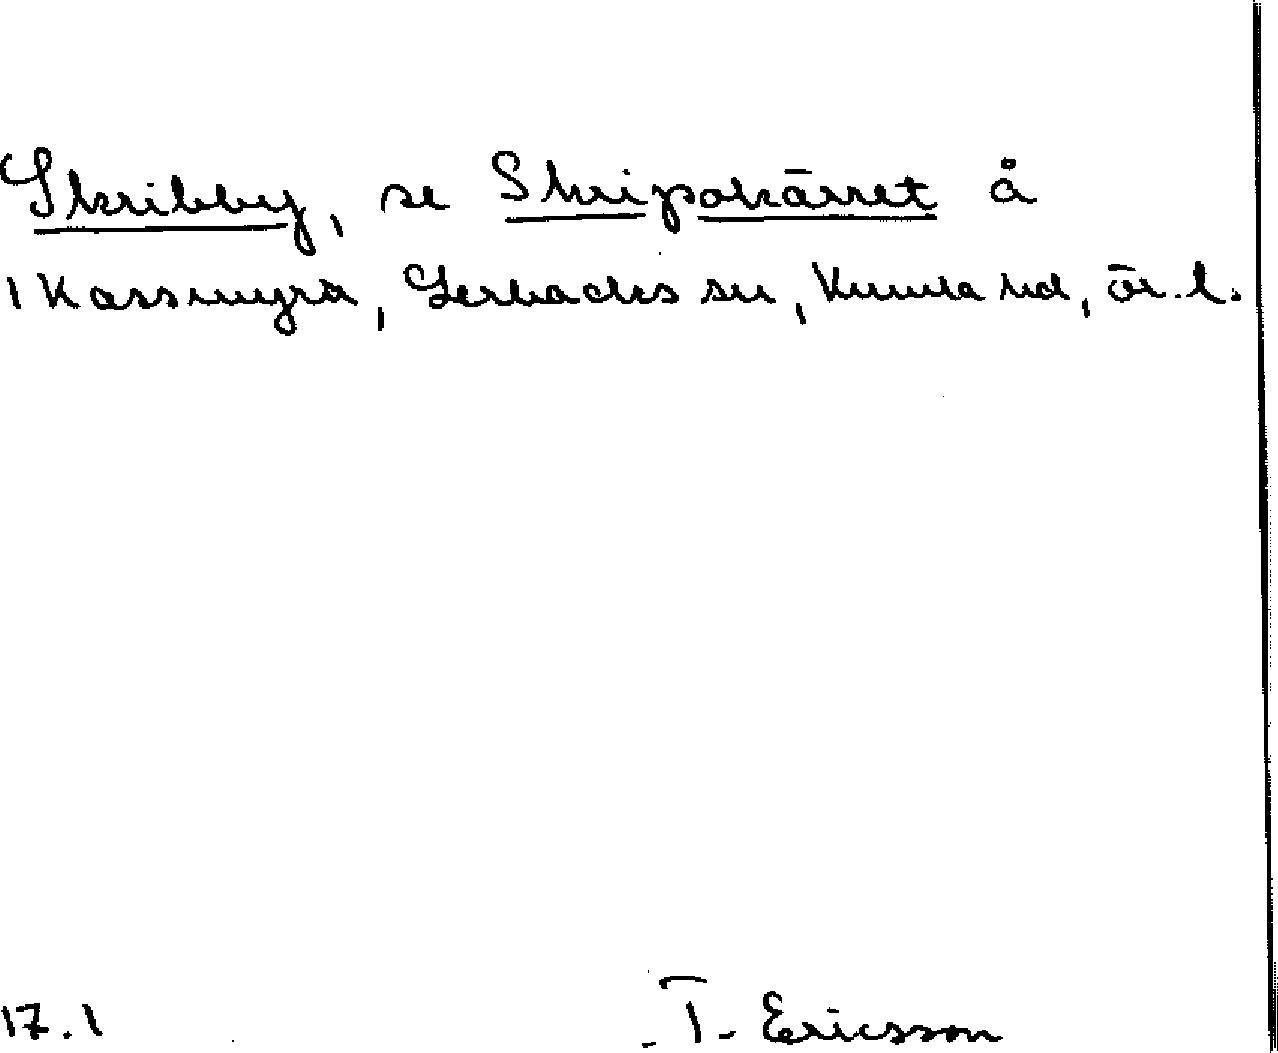 Skribby, se Skripokärret å
1 Kassmyra, Lerbäcks sn, Kumla hd, ör. l.
17.1 T. Ericsson